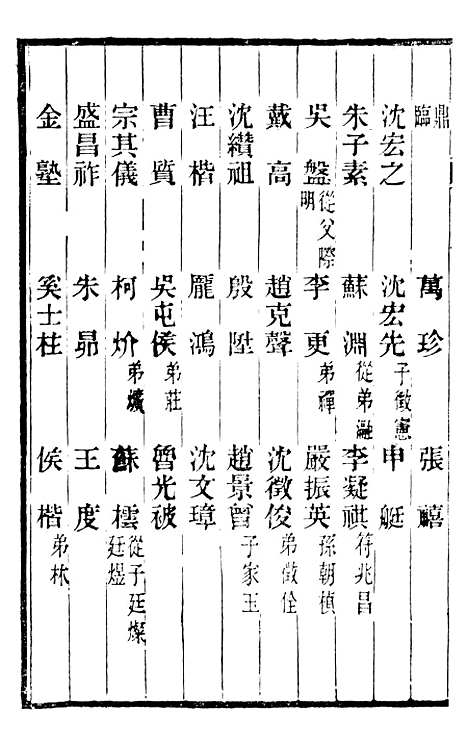 鼎臨　萬珍　張鱚
沈宏之　沈宏先子徵憲　申艇
朱子素　蘇淵從弟瀜　李凝祺符兆昌
吳盤從父際明　李更弟禪　嚴振英孫朝楨
戴高　趙克聲　沈徵俊弟徵佺
沈纘祖　殷陞　趙景曾子家玉
汪楷　龐鴻　沈文璋
曹質　吳屯侯弟莊　曾光被
宗其儀　柯炌弟爌　蘇橒從子廷燦廷煜
盛昌祚　朱昴　王度
金塾　奚士柱　侯楷弟杕